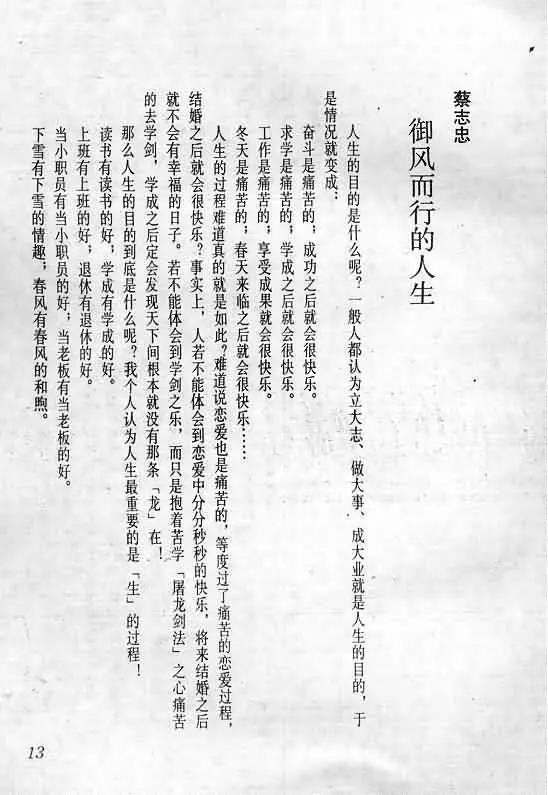 蔡志忠
御风而行的人生
人生的目的是什么呢？一般人都认为立大志、做大事、成大业就是人生的目的，于
是情况就变成：
奋斗是痛苦的；成功之后就会很快乐。
求学是痛苦的；学成之后就会很快乐。
工作是痛苦的；享受成果就会很快乐。
冬天是痛苦的；春天来临之后就会很快乐……
人生的过程难道真的就是如此？难道说恋爱也是痛苦的，等度过了痛苦的恋爱过程，
结婚之后就会很快乐？事实上，人若不能体会到恋爱中分分秒秒的快乐，将来结婚之后
就不会有幸福的日子。若不能体会到学剑之乐，而只是抱着苦学「屠龙剑法」之心痛苦
的去学剑，学成之后定会发现天下间根本就没有那条「龙」在！
那么人生的目的到底是什么呢？我个人认为人生最重要的是「生」的过程！
读书有读书的好，学成有学成的好。
上班有上班的好；退休有退休的好。
当小职员有当小职员的好；当老板有当老板的好。
下雪有下雪的情趣；春风有春风的和煦。
13